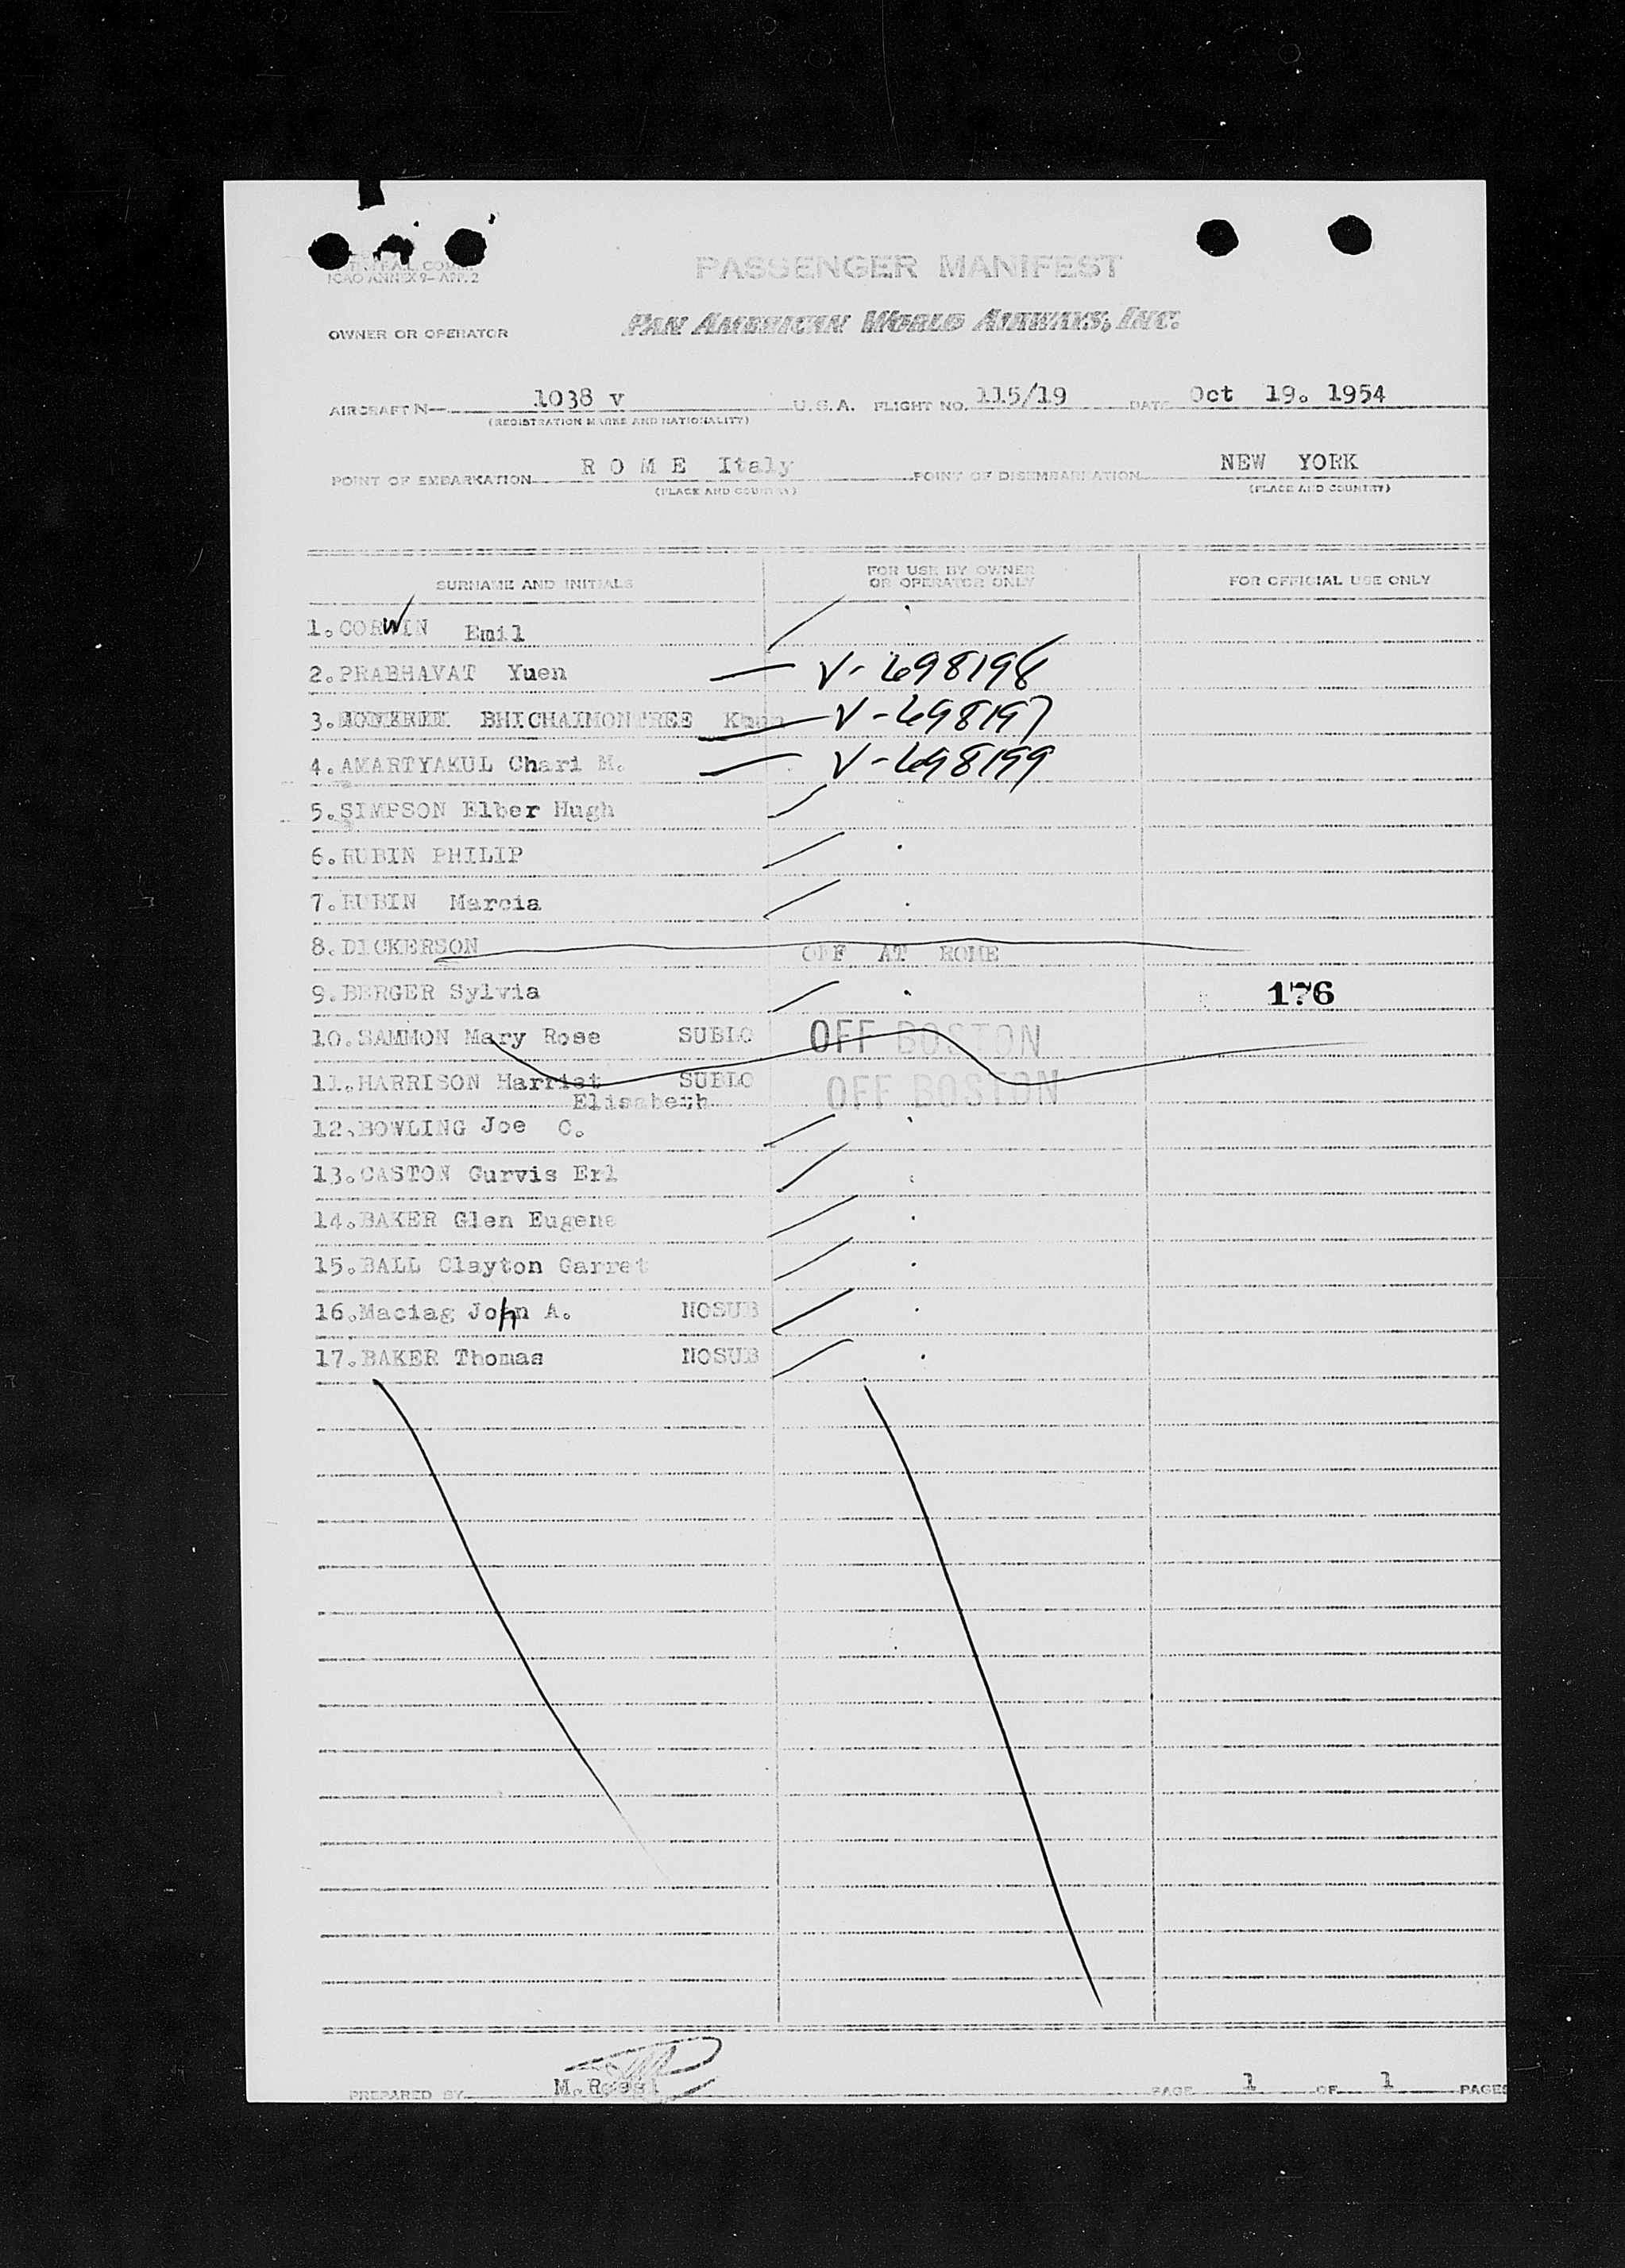 ICAO ANNEX 9-APP. 2
PASSENGER MANIFEST
OWNER OR OPERATOR PAN AMERICAN WORLD AIRWAYS, INC.
AIRCRAFT N— 1038 v U.S.A. FLIGHT NO. 115/19 DATE Oct 19. 1954
(REGISTRATION MARKS AND NATIONALITY)
POINT OF EMBARKATION R O M E Italy POINT OF DISEMBARKATION NEW YORK
(PLACE AND COUNTRY) (PLACE AND COUNTRY)
SURNAME AND INITIALS FOR USE BY OWNER OR OPERATOR ONLY FOR OFFICIAL USE ONLY
1. CORWIN Emil
2. PRABHAVAT Yuen V-698198
3. BHICHAIMONTREE Khun V-698197
4. AMARTYAKUL Chari M. V-698199
5. SIMPSON Elber Hugh
6. RUBIN PHILIP
7. RUBIN Marcia
8. DICKERSON OFF AT ROME
9. BERGER Sylvia 176
10. SAMMON Mary Rose SUBLO OFF BOSTON
11. HARRISON Harriet SUBLO OFF BOSTON
Elisabeth
12. BOWLING Joe C.
13. CASTON Gurvis Erl
14. BAKER Glen Eugene
15. BALL Clayton Garret
16. Maciag John A. NOSUB
17. BAKER Thomas NOSUB
PREPARED BY M. Rossi PAGE 1 OF 1 PAGES